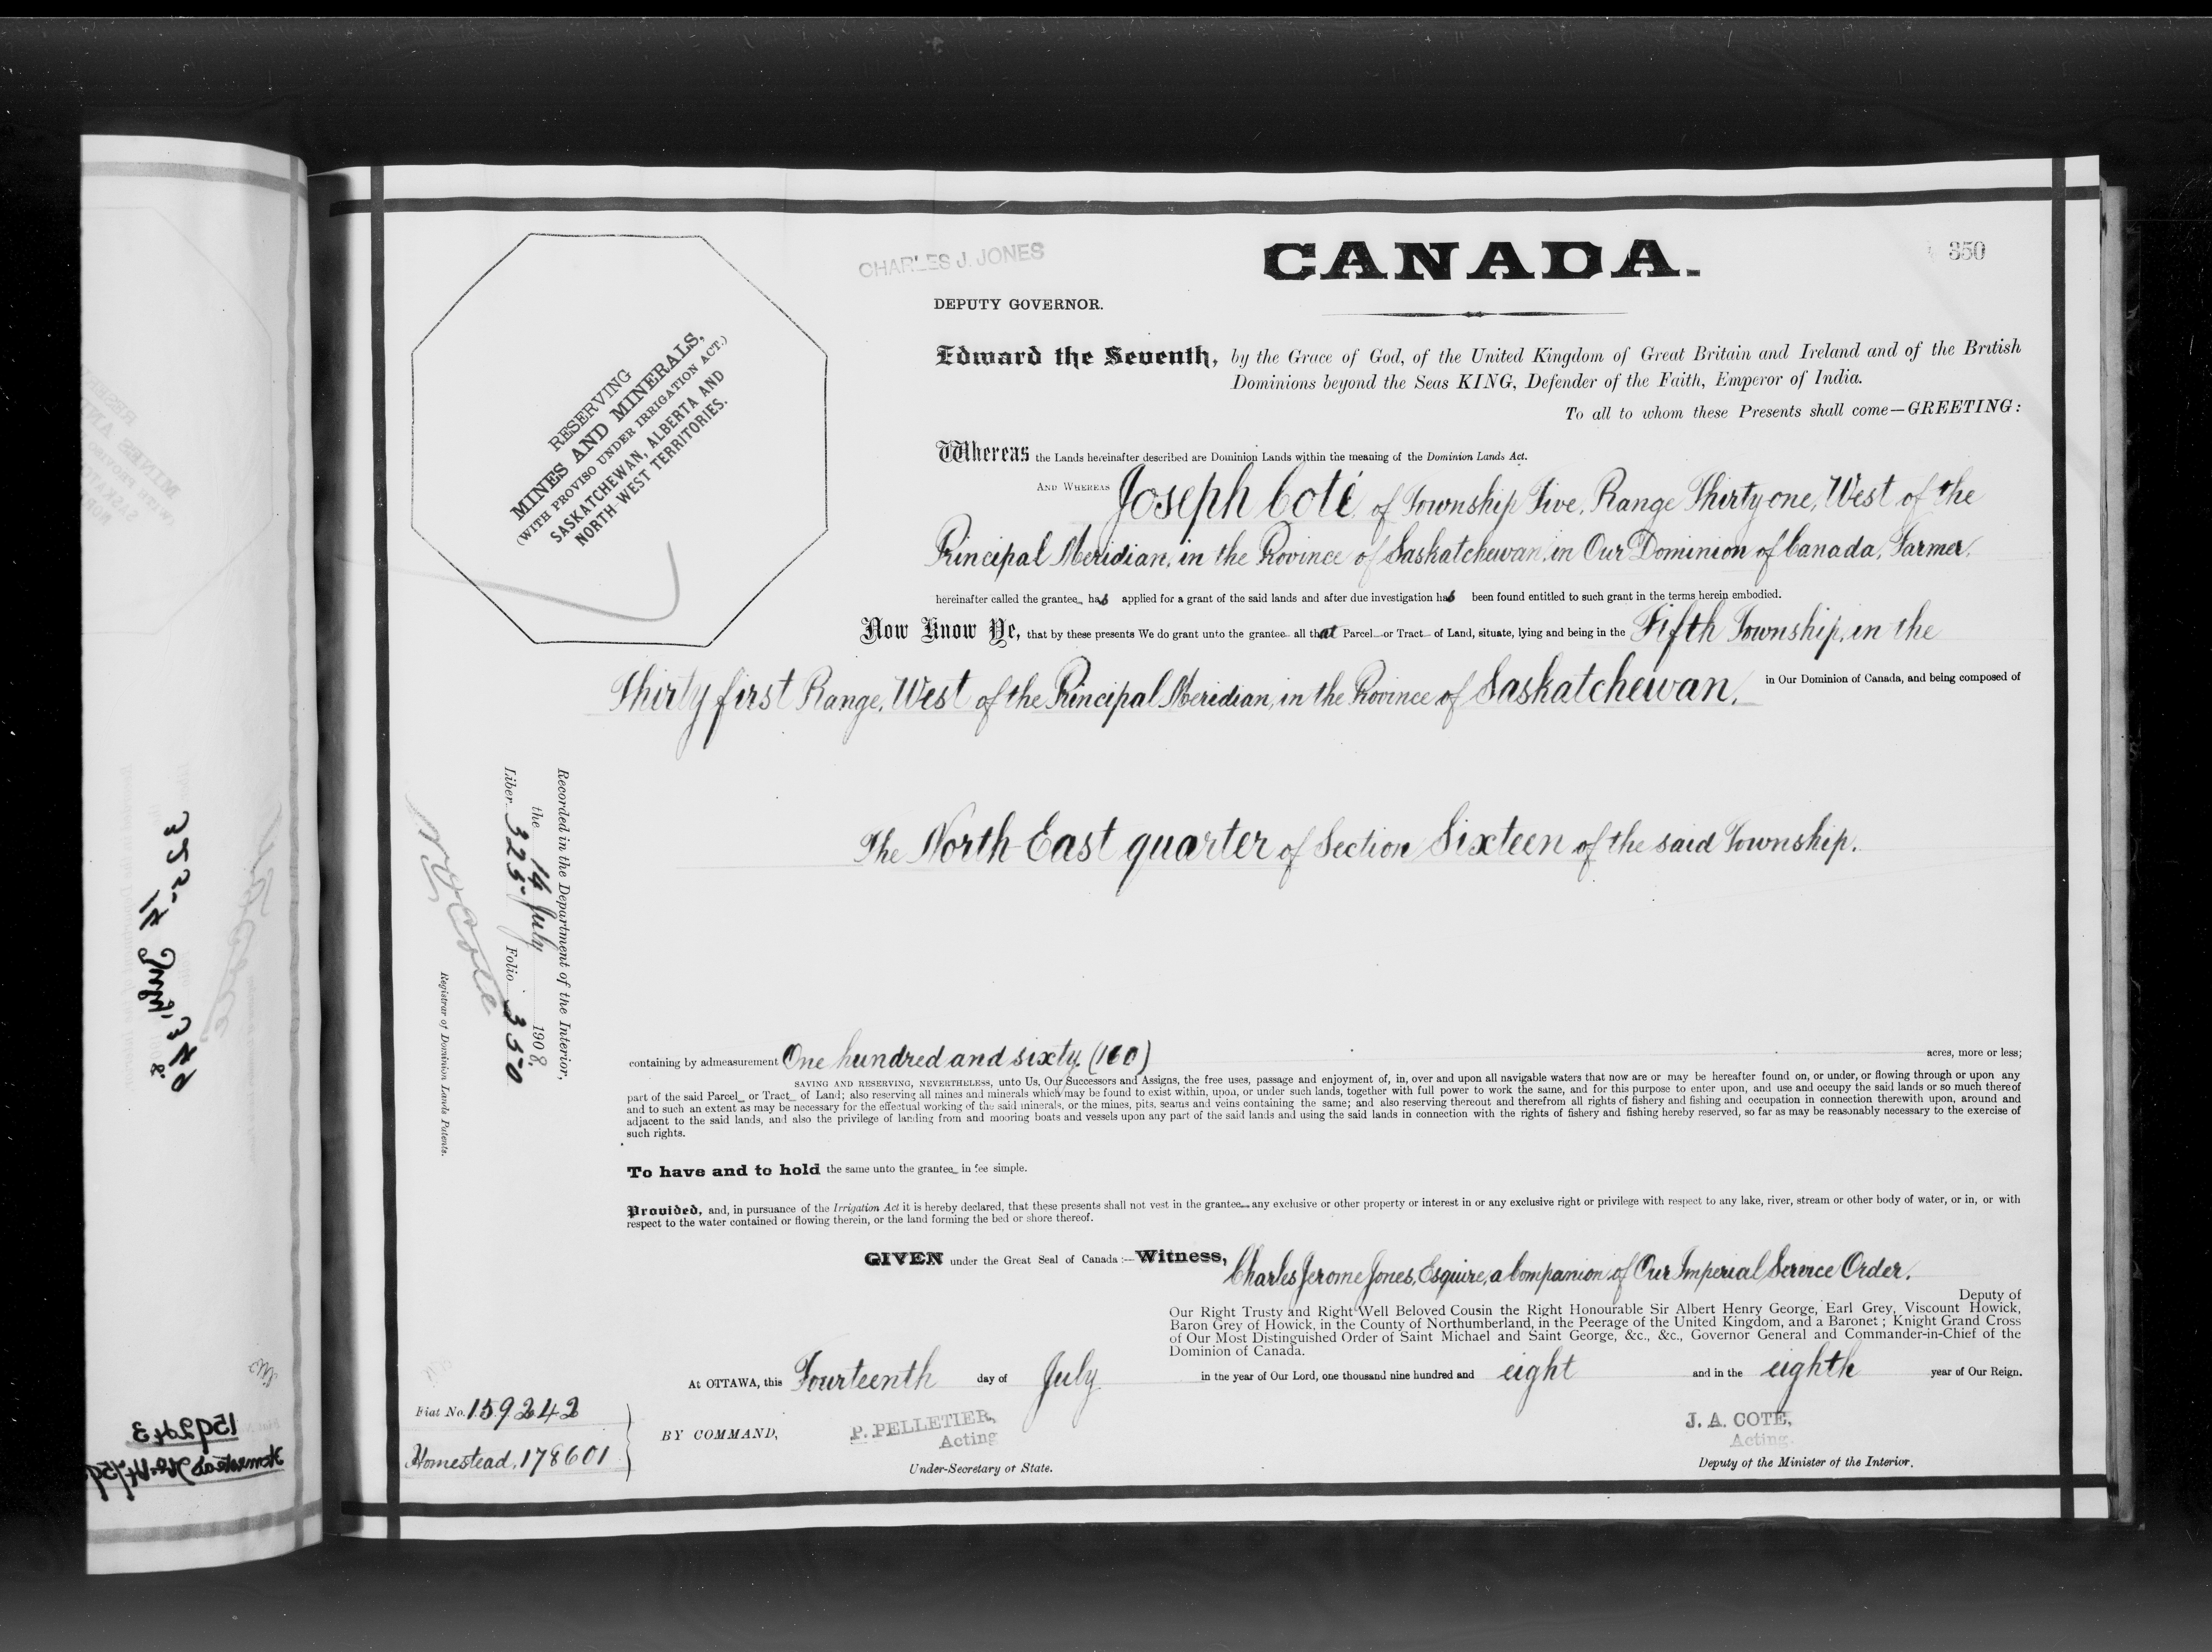 CHARLES J. JONES
CANADA.
350
DEPUTY GOVERNOR.
RESERVING
MINES AND MINERALS,
(WITH PROVISO UNDER IRRIGATION ACT.)
SASKATCHEWAN, ALBERTA AND
NORTH-WEST TERRITORIES.
Edward the Seventh, by the Grace of God, of the United Kingdom of Great Britain and Ireland and of the British
Dominions beyond the Seas KING, Defender of the Faith, Emperor of India.
To all to whom these Presents shall come—GREETING:
Whereas the Lands hereinafter described are Dominion Lands within the meaning of the Dominion Lands Act.
AND WHEREAS Joseph Coté, of Township Five, Range Thirty one, West of the
Principal Meridian, in the Province of Saskatchewan, in Our Dominion of Canada, Farmer,
hereinafter called the grantee has applied for a grant of the said lands and after due investigation has been found entitled to such grant in the terms herein embodied.
Now Know Ye, that by these presents We do grant unto the grantee all that Parcel or Tract of Land, situate, lying and being in the Fifth Township, in the
Thirty first Range, West of the Principal Meridian, in the Province of Saskatchewan, in Our Dominion of Canada, and being composed of
The North East quarter of Section Sixteen of the said Township.
Recorded in the Department of the Interior,
the 14 July 1908,
Liber 325 Folio 350
Registrar of Dominion Lands Patents.
containing by admeasurement One hundred and sixty (160) acres, more or less;
SAVING AND RESERVING, NEVERTHELESS, unto Us, Our Successors and Assigns, the free uses, passage and enjoyment of, in, over and upon all navigable waters that now are or may be hereafter found on, or under, or flowing through or upon any
part of the said Parcel or Tract of Land; also reserving all mines and minerals which may be found to exist within, upon, or under such lands, together with full power to work the same, and for this purpose to enter upon, and use and occupy the said lands or so much thereof
and to such an extent as may be necessary for the effectual working of the said minerals, or the mines, pits, seams and veins containing the same; and also reserving thereout and therefrom all rights of fishery and fishing and occupation in connection therewith upon, around and
adjacent to the said lands, and also the privilege of landing from and mooring boats and vessels upon any part of the said lands and using the said lands in connection with the rights of fishery and fishing hereby reserved, so far as may be reasonably necessary to the exercise of
such rights.
To have and to hold the same unto the grantee in fee simple.
Provided, and, in pursuance of the Irrigation Act it is hereby declared, that these presents shall not vest in the grantee any exclusive or other property or interest in or any exclusive right or privilege with respect to any lake, river, stream or other body of water, or in, or with
respect to the water contained or flowing therein, or the land forming the bed or shore thereof.
GIVEN under the Great Seal of Canada:—Witness, Charles Jerome Jones, Esquire, a Companion of Our Imperial Service Order.
Deputy of
Our Right Trusty and Right Well Beloved Cousin the Right Honourable Sir Albert Henry George, Earl Grey, Viscount Howick,
Baron Grey of Howick, in the County of Northumberland, in the Peerage of the United Kingdom, and a Baronet; Knight Grand Cross
of Our Most Distinguished Order of Saint Michael and Saint George, &c., &c., Governor General and Commander-in-Chief of the
Dominion of Canada.
At OTTAWA, this Fourteenth day of July in the year of Our Lord, one thousand nine hundred and eight and in the eighth year of Our Reign.
Fiat No. 159242
Homestead, 178601
BY COMMAND,
P. PELLETIER,
Acting
Under-Secretary of State.
J. A. COTE,
Acting.
Deputy of the Minister of the Interior.